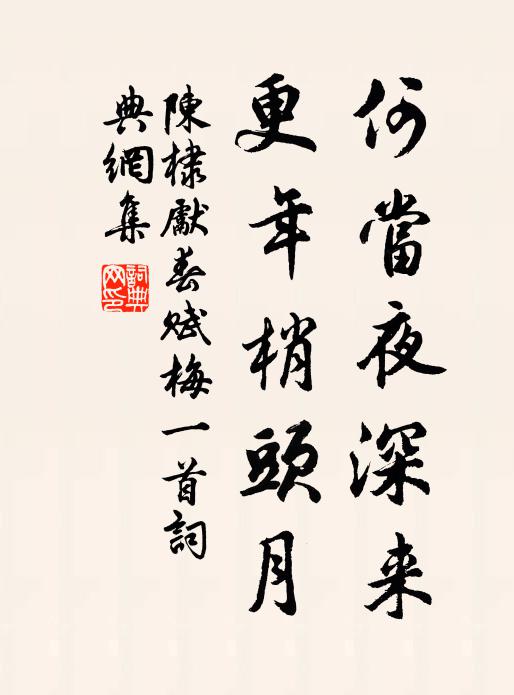 何當夜深来
更年梢頭月
陳棣獻春賦梅一首詞
典網集
詞典
网印